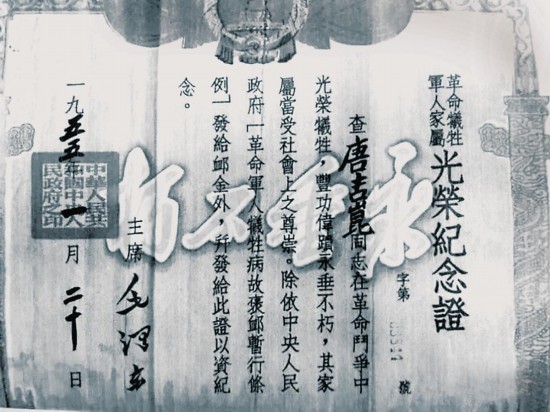 革命犧牲
軍人家屬
光榮紀念證
字第 號
查唐吉崑同志在革命鬥爭中
光榮犧牲，豐功偉蹟永垂不朽，其家
屬當受社會上之尊崇。除依中央人民
政府「革命軍人犧牲病故褒卹暫行條
例」發給卹金外，幷發給此證以資紀
念。
永垂不朽
主席 毛澤东
一九五五年一月二十日
中華人民共
和國中央人
民政府之印